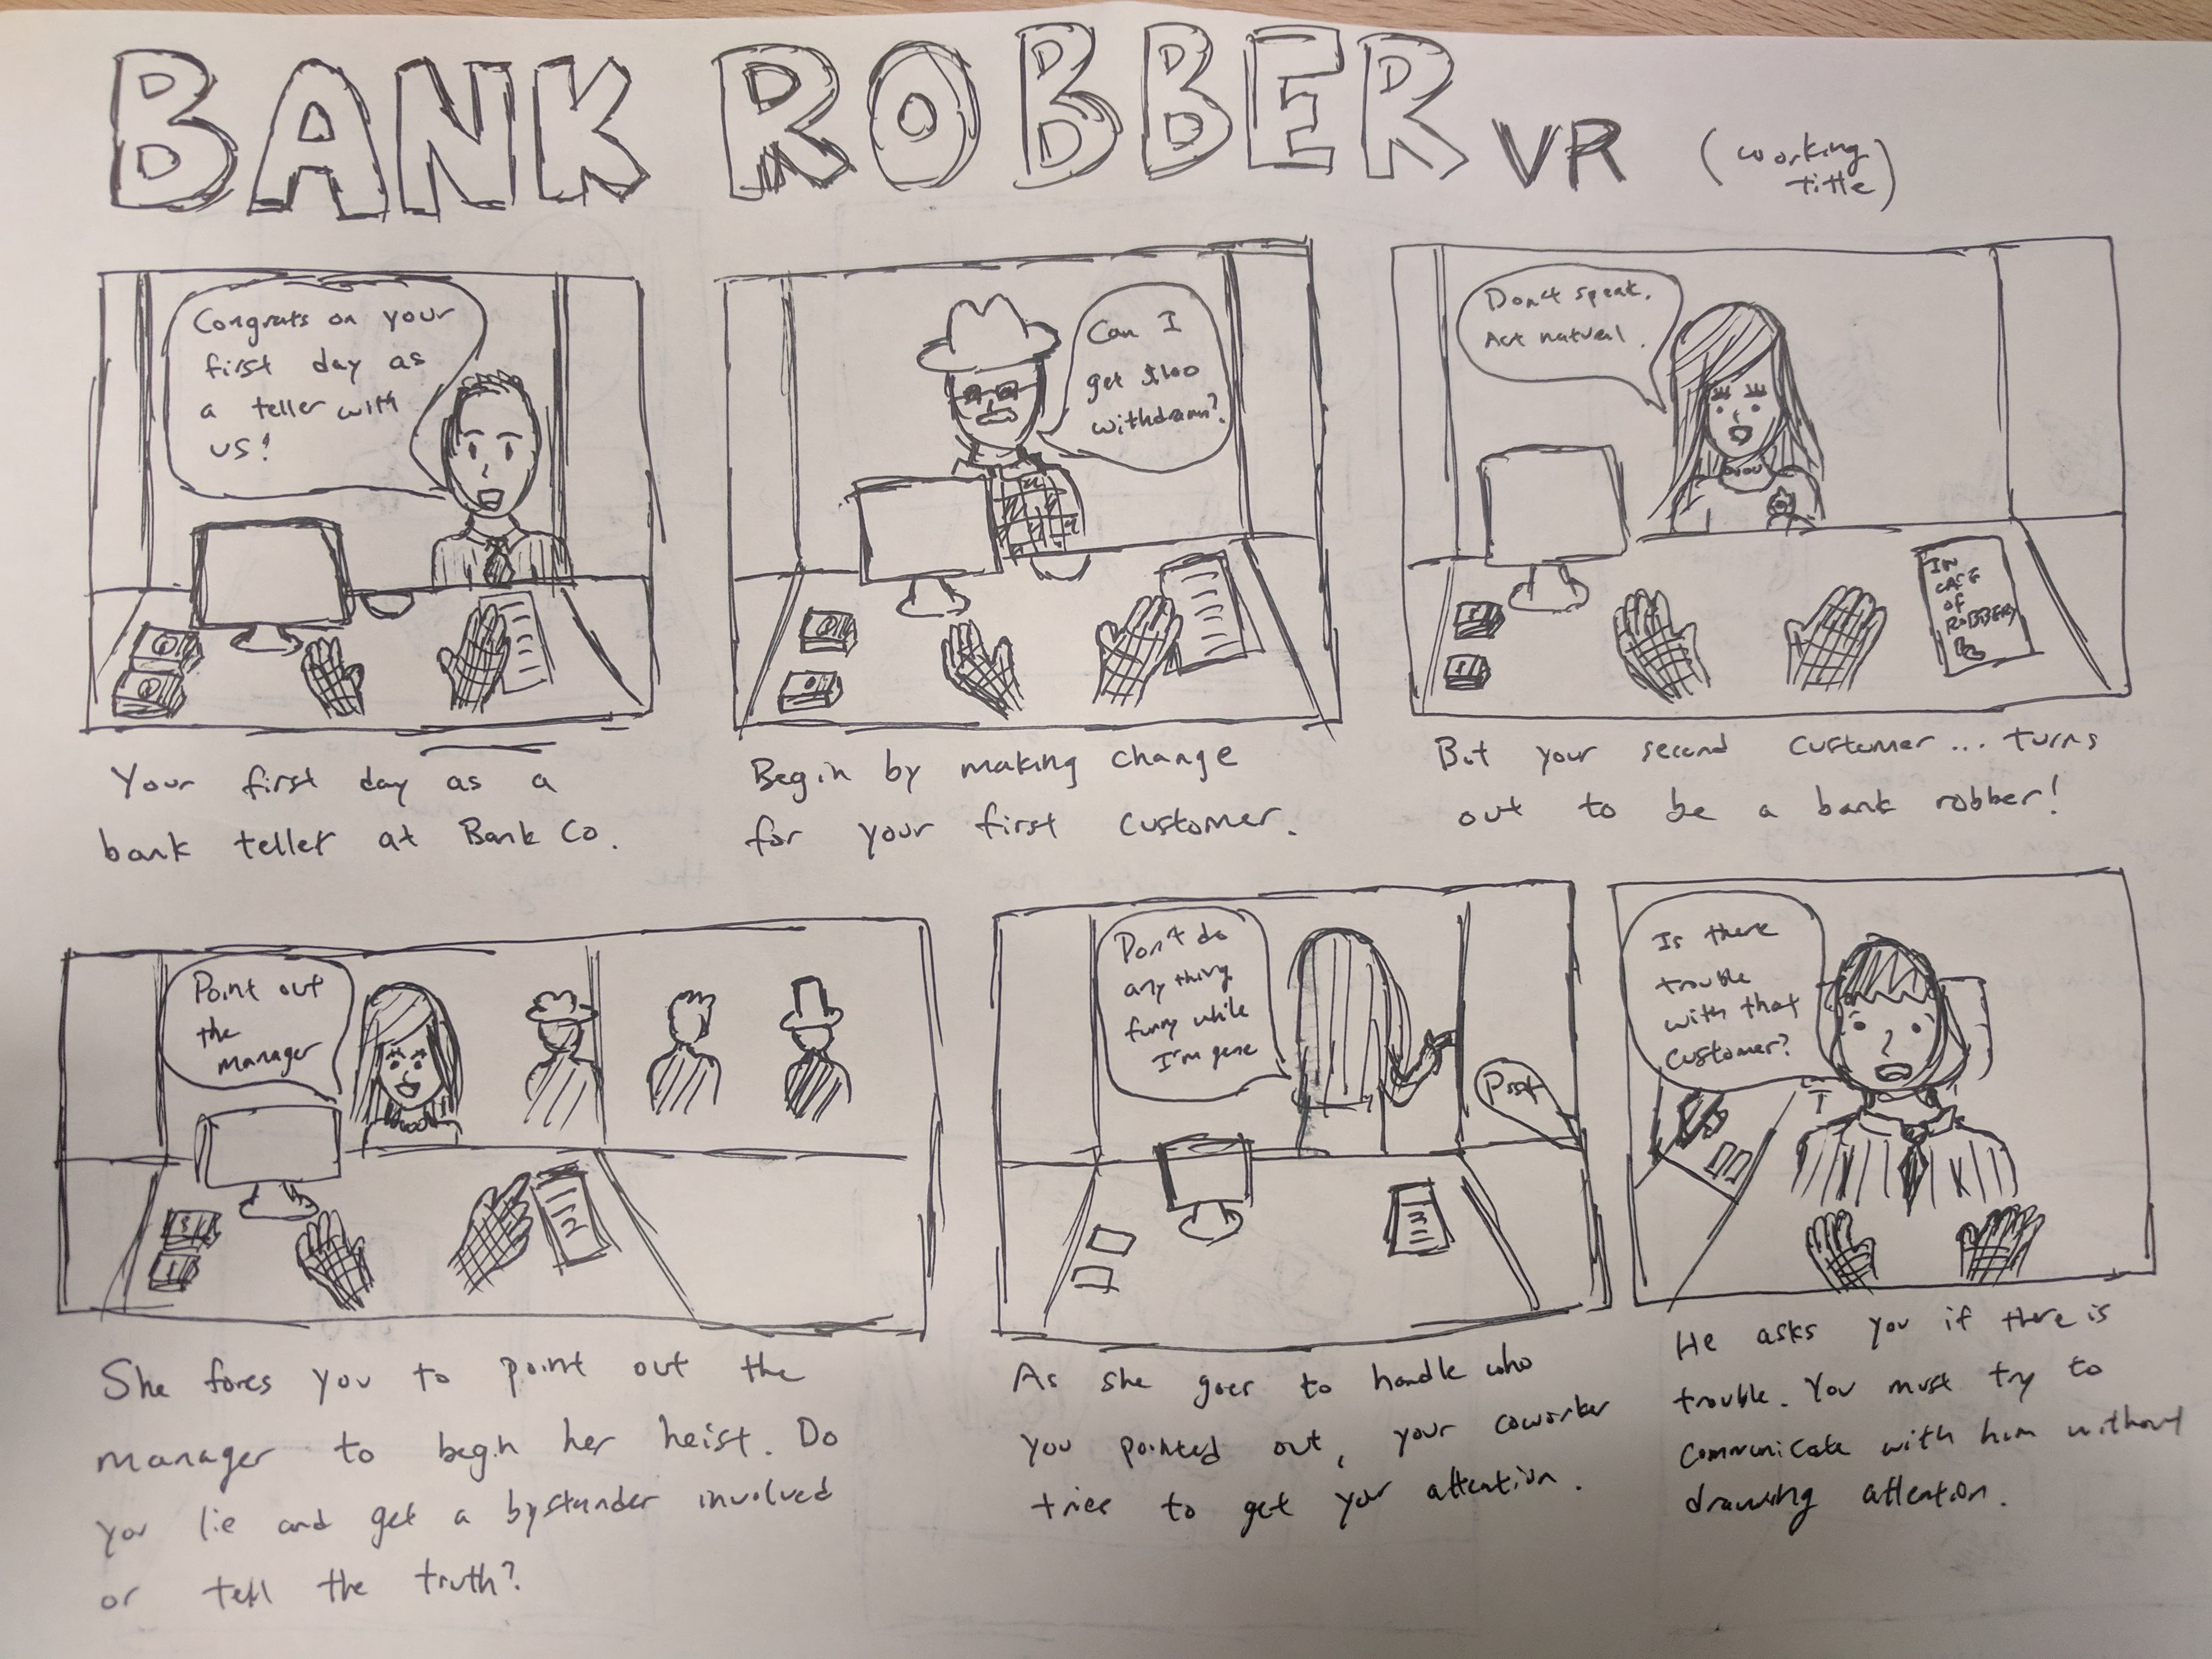 BANK ROBBER VR (working
title)
Congrats on your
first day as
a teller with
us!
Your first day as a
bank teller at Bank Co.
Can I
get $100
withdrawn?
Begin by making change
for your first customer.
Don't speak.
Act natural.
IN
CASE
of
ROBBERY
But your second customer... turns
out to be a bank robber!
Point out
the
manager
She fores you to point out the
manager to begin her heist. Do
you lie and get a bystander involved
or tell the truth?
Don't do
anything
funny while
I'm gone
Psst
As she goes to handle who
you pointed out, your coworker
tries to get your attention.
Is there
trouble
with that
customer?
He asks you if there is
trouble. You must try to
communicate with him without
drawing attention.